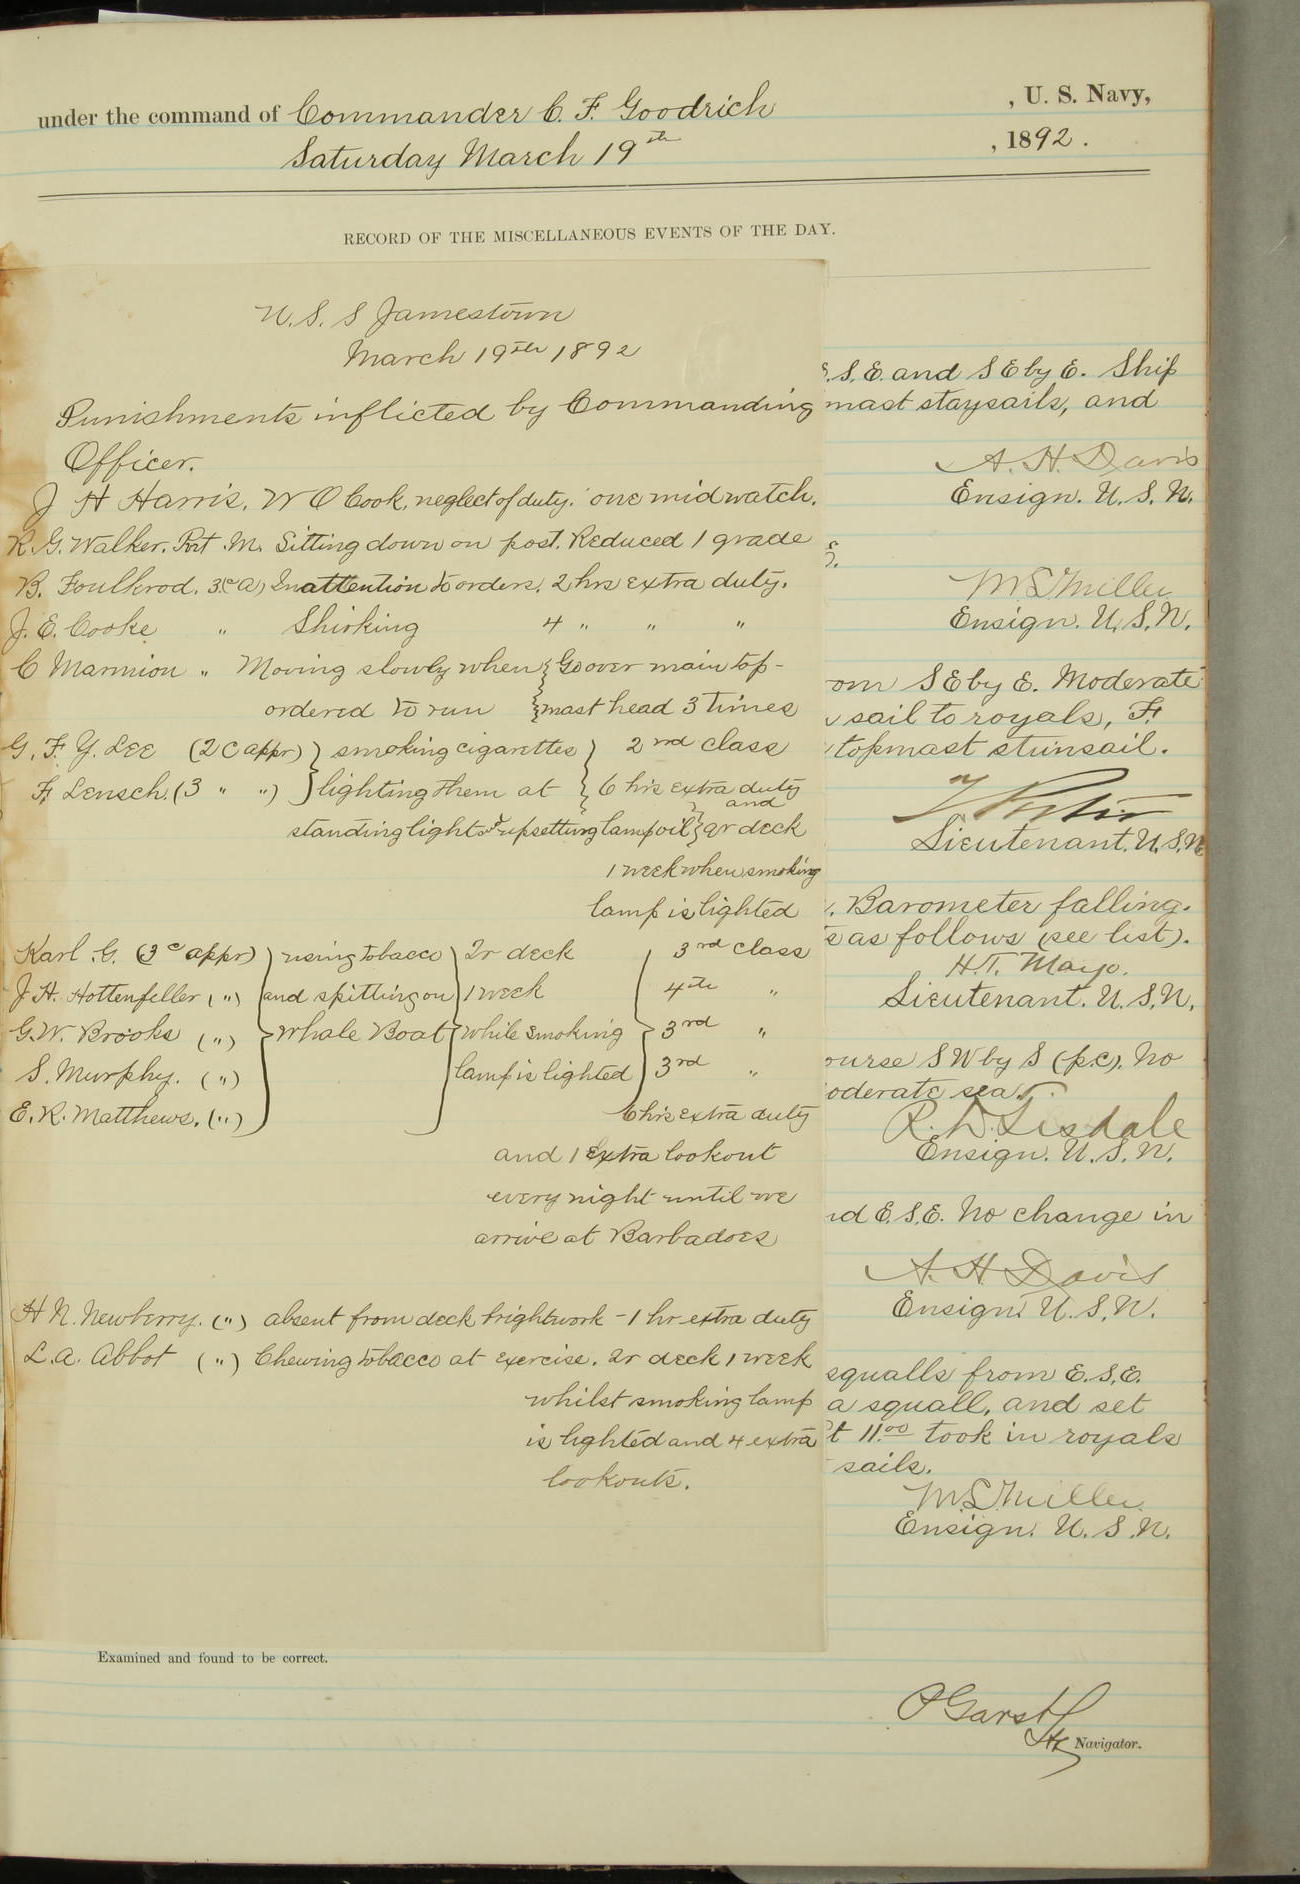 under the command of Commander C. F. Goodrich , U. S. Navy,
Saturday March 19th , 1892.
RECORD OF THE MISCELLANEOUS EVENTS OF THE DAY.
U. S. S Jamestown
March 19th 1892
Punishments inflicted by Commanding
Officer.
J H Harris. W O Cook. neglect of duty. one mid watch.
R. G. Walker. Prt. M. Sitting down on post. Reduced 1 grade
B. Foulkrod. 3(c a) Inattention to orders. 2 hrs extra duty.
J. E. Cooke " Shirking 4 " " "
C Marmion " Moving slowly when } Go over main top-
ordered to run } mast head 3 times
G. F. Y. Lee (2 c appr) } smoking cigarettes } 2nd class
F. Lensch. (3 " ") } lighting them at } 6 hrs extra duty
and
standing lights & upsetting lamp oil } qr deck
1 week when smoking
lamp is lighted
Karl. G. (3c appr) } using tobacco } Qr deck } 3rd class
J. H. Hottenfeller (") } and spitting on } 1 week } 4th "
G. W. Brooks (") } Whale Boat } while smoking } 3rd "
S. Murphy. (") } } lamp is lighted } 3rd "
E. R. Matthews. (") 6 hrs extra duty
and 1 Extra lookout
every night until we
arrive at Barbadoes
H N. Newberry. (") absent from deck brightwork - 1 hr extra duty
L. A. Abbot (") Chewing tobacco at exercise. Qr deck 1 week
whilst smoking lamp
is lighted and 4 extra
lookouts.
S. E. and S E by E. Ship
mast staysails, and
A. H. Davis
Ensign. U. S. N.
M L Miller
Ensign. U. S. N.
om S E by E. Moderate
sail to royals, F.
topmast stunsail.
Lieutenant. U. S. N
. Barometer falling.
s as follows (see list).
H. T. Mayo.
Lieutenant. U. S. N.
ourse S W by S (p.c). No
oderate sea.
R. D. Tisdale
Ensign. U. S. N.
nd E. S. E. No change in
A. H. Davis
Ensign. U. S. N.
squalls from E. S. E.
a squall, and set
t 11.00 took in royals
sails.
M L Miller
Ensign. U. S. N.
Examined and found to be correct.
P Garst
Lt. Navigator.